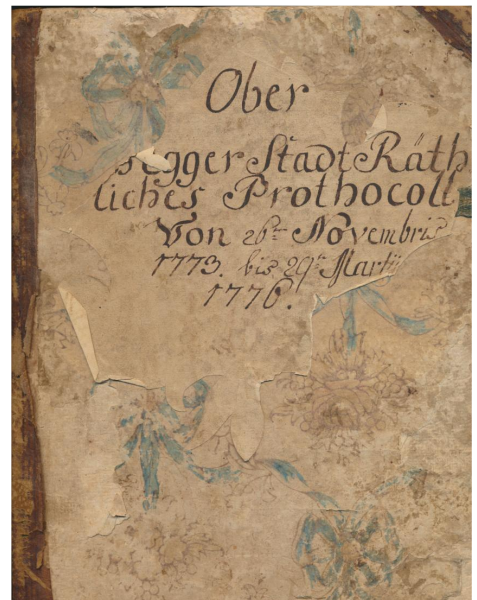 Ober
segger Stadt Räth
liches Prothocoll
Von 26ten Novembris
1773. bis 29te Martii
1776.